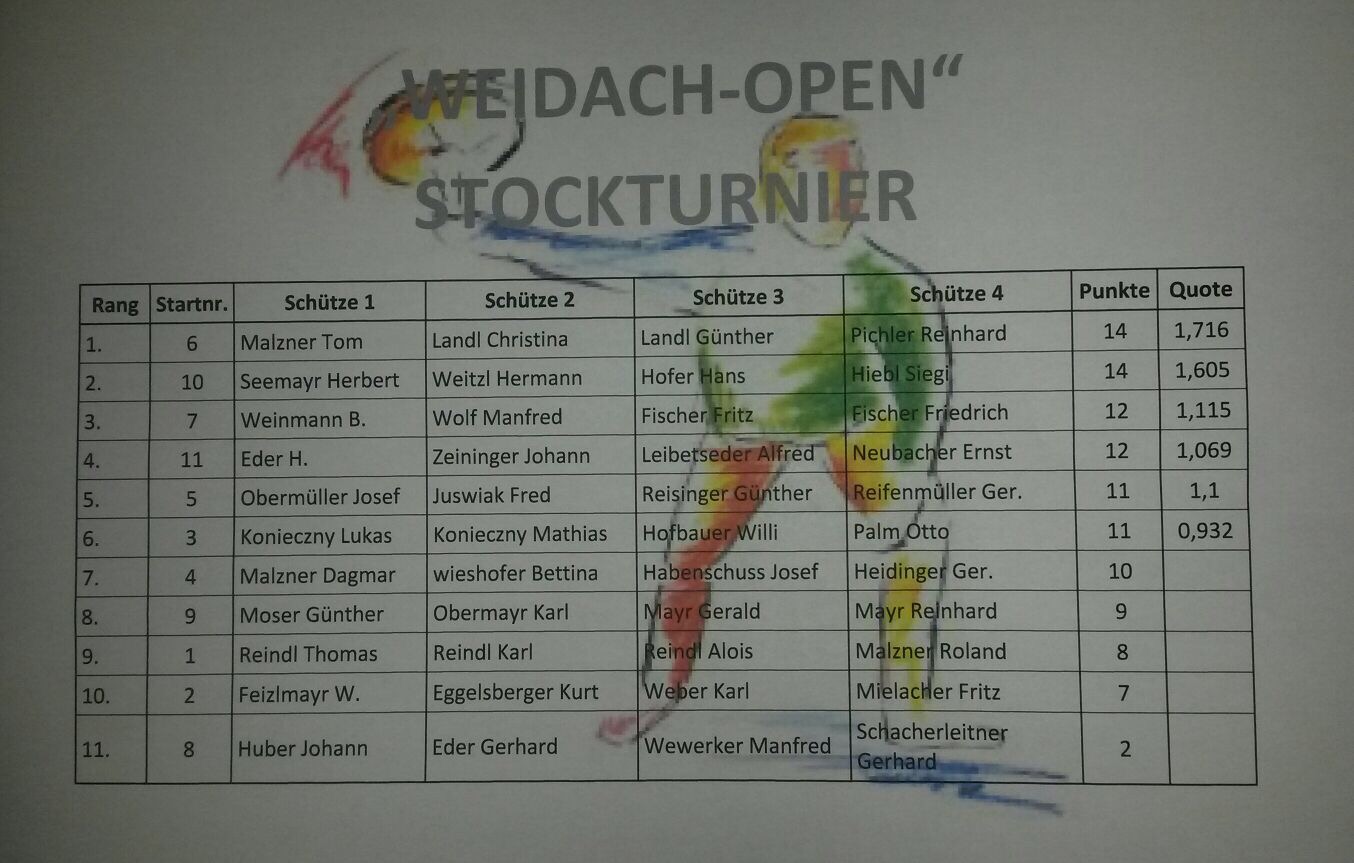 „WEIDACH-OPEN“
STOCKTURNIER
Rang Startnr. Schütze 1 Schütze 2 Schütze 3 Schütze 4 Punkte Quote
1. 6 Malzner Tom Landl Christina Landl Günther Pichler Reinhard 14 1,716
2. 10 Seemayr Herbert Weitzl Hermann Hofer Hans Hiebl Siegi 14 1,605
3. 7 Weinmann B. Wolf Manfred Fischer Fritz Fischer Friedrich 12 1,115
4. 11 Eder H. Zeininger Johann Leibetseder Alfred Neubacher Ernst 12 1,069
5. 5 Obermüller Josef Juswiak Fred Reisinger Günther Reifenmüller Ger. 11 1,1
6. 3 Konieczny Lukas Konieczny Mathias Hofbauer Willi Palm Otto 11 0,932
7. 4 Malzner Dagmar wieshofer Bettina Habenschuss Josef Heidinger Ger. 10
8. 9 Moser Günther Obermayr Karl Mayr Gerald Mayr Reinhard 9
9. 1 Reindl Thomas Reindl Karl Reindl Alois Malzner Roland 8
10. 2 Feizlmayr W. Eggelsberger Kurt Weber Karl Mielacher Fritz 7
11. 8 Huber Johann Eder Gerhard Wewerker Manfred Schacherleitner 2
Gerhard